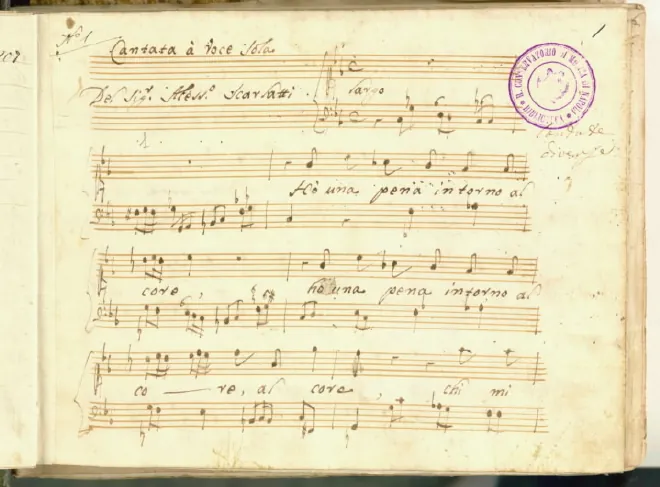 No 1
1
Cantata à Voce Sola
Del Sigr. Aless.o Scarlatti
Largo
207
R. CONSERVATORIO DI MUSICA DI NAPOLI
BIBLIOTECA
Hò una pena intorno al
core, hò una pena intorno al
co — re, al core, chi mi